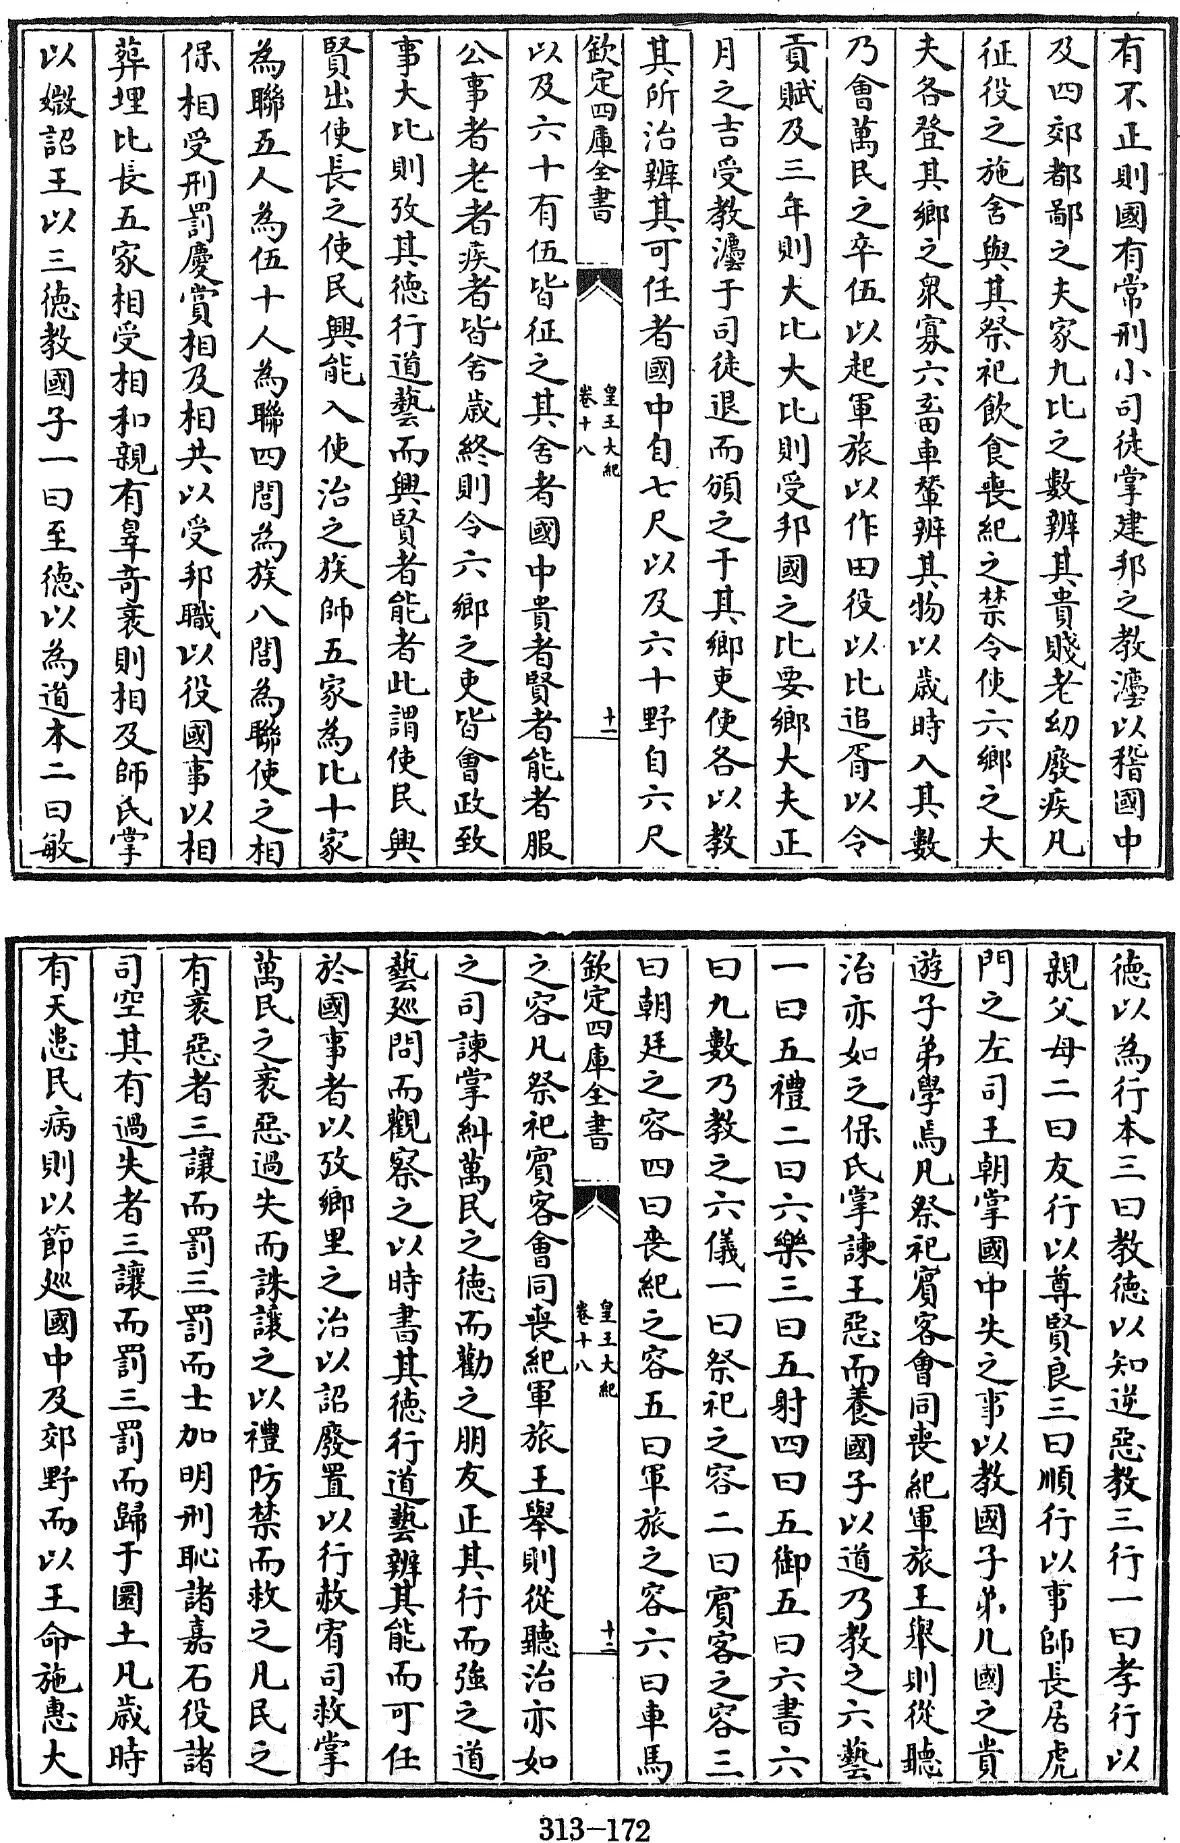 有不正則國有常刑小司徒掌建邦之教灋以稽國中
及四郊都鄙之夫家九比之數辨其貴賤老幼廢疾凡
征役之施舍與其祭祀飲食喪紀之禁令使六鄉之大
夫各登其鄉之衆寡六畜車輦辨其物以歲時入其數
乃會萬民之卒伍以起軍旅以作田役以比追胥以令
貢賦及三年則大比大比則受邦國之比要鄉大夫正
月之吉受教灋于司徒退而頒之于其鄉吏使各以教
其所治辨其可任者國中自七尺以及六十野自六尺
欽定四庫全書
皇王大紀
卷十八
十一
以及六十有伍皆征之其舍者國中貴者賢者能者服
公事者老者疾者皆舍歲終則令六鄉之吏皆會政致
事大比則攷其德行道藝而興賢者能者此謂使民興
賢出使長之使民興能入使治之族師五家為比十家
為聯五人為伍十人為聯四閭為族八閭為聯使之相
保相受刑罰慶賞相及相共以受邦職以役國事以相
葬埋比長五家相受相和親有辠奇衺則相及師氏掌
以媺詔王以三德教國子一曰至德以為道本二曰敏
德以為行本三曰教德以知逆惡教三行一曰孝行以
親父母二曰友行以尊賢良三曰順行以事師長居虎
門之左司王朝掌國中失之事以教國子弟凡國之貴
遊子弟學焉凡祭祀賓客會同喪紀軍旅王舉則從聽
治亦如之保氏掌諫王惡而養國子以道乃教之六藝
一曰五禮二曰六樂三曰五射四曰五御五曰六書六
曰九數乃教之六儀一曰祭祀之容二曰賓客之容三
曰朝廷之容四曰喪紀之容五曰軍旅之容六曰車馬
欽定四庫全書
皇王大紀
卷十八
十二
之容凡祭祀賓客會同喪紀軍旅王舉則從聽治亦如
之司諫掌糾萬民之德而勸之朋友正其行而強之道
藝廵問而觀察之以時書其德行道藝辨其能而可任
於國事者以攷鄉里之治以詔廢置以行赦宥司救掌
萬民之衺惡過失而誅讓之以禮防禁而救之凡民之
有衺惡者三讓而罰三罰而士加明刑恥諸嘉石役諸
司空其有過失者三讓而罰三罰而歸于圜土凡歲時
有天患民病則以節廵國中及郊野而以王命施惠大
313-172